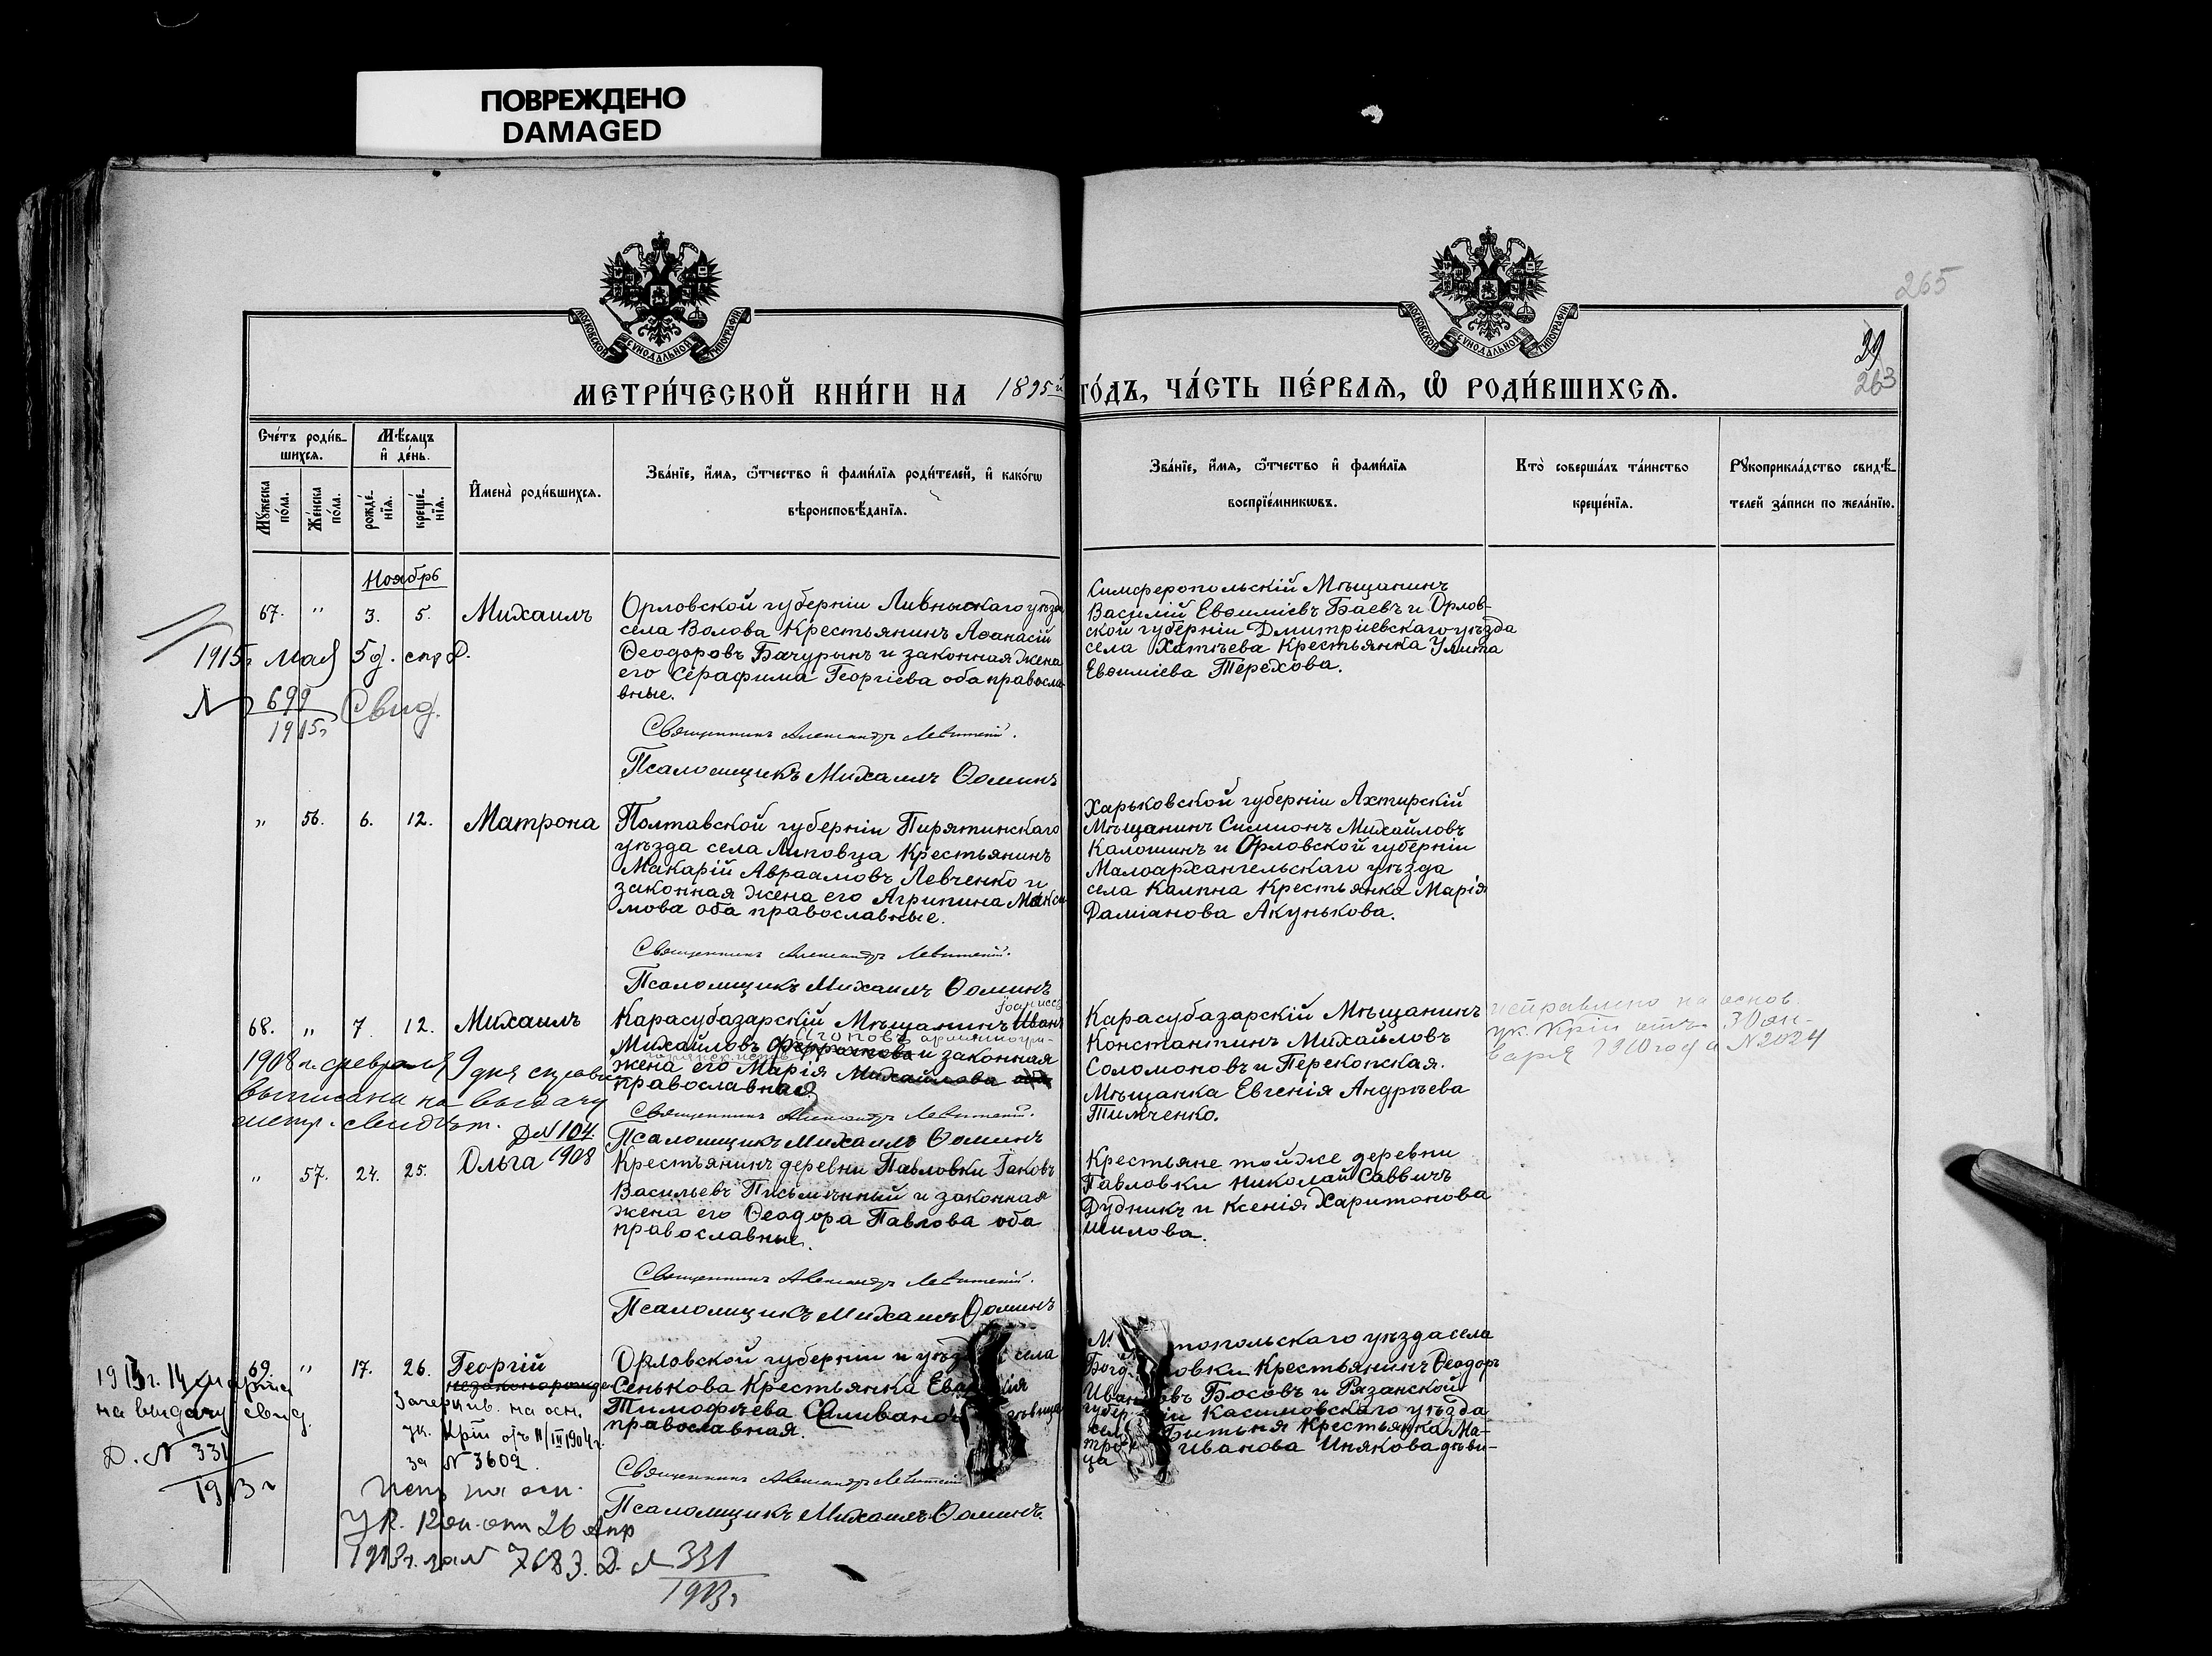 ПОВРЕЖДЕНО
DAMAGED
265
29
263
МОСКОВСКОЙ СѴНОДАЛЬНОЙ ТИПОГРАФІИ
МОСКОВСКОЙ СѴНОДАЛЬНОЙ ТИПОГРАФІИ
МЕТРИ́ЧЕСКОЙ КНИ́ГИ НА 1895й ГО́ДЪ, ЧА́СТЬ ПЕ́РВАѦ, Ѿ РОДИ́ВШИХСѦ.
Сче́тъ роди́в-
шихсѧ.
Мѣ́сѧцъ
и҆ де́нь.
Мꙋ́жеска по́ла.
Же́нска по́ла.
рожде́-
нїѧ.
креще́-
нїѧ.
И҆мена̀ роди́вшихсѧ.
Зва́нїе, и҆́мѧ, ѻ҆́тчество и҆ фами́лїѧ роди́телей, и҆ како́гѡ
вѣроисповѣ́данїѧ.
Зва́нїе, и҆́мѧ, ѻ҆́тчество и҆ фами́лїѧ
воспрїе́мникѡвъ.
Кто̀ соверша́лъ та́инство
креще́нїѧ.
Рꙋкоприкла́дство свидѣ́-
телей за́писи по жела́нїю.
Ноябрь
67. " 3. 5. Михаилъ
Орловской губерніи Ливныскаго уѣзда
села Волова Крестьянинъ Аѳанасій
Ѳеодоровъ Бачурынъ и законная жена
его Серафима Георгіева оба правосла-
вные.
Священникъ Александръ Левитскій.
Псаломщикъ Михаилъ Ѳоминъ
Симферопольскій Мѣщанинъ
Василій Евѳиміевъ Баевъ и Орлов-
ской губерніи Дмитріевскаго уѣзда
села Хатѣева Крестьянка Улита
Евѳиміева Терехова.
1915г мая 5 д.
№ 699 Свид.
1915г
" 56. 6. 12. Матрона
Полтавской губерніи Пирятинскаго
уѣзда села Линовца Крестьянинъ
Макарій Авраамовъ Левченко и
законная жена его Агрипина Макси-
мова оба православные.
Священникъ Александръ Левитскій.
Псаломщикъ Михаилъ Ѳоминъ
Харьковской губерніи Ахтирскій
Мѣщанинъ Симионъ Михайловъ
Калошинъ и Орловской губерніи
Малоархангельскаго уѣзда
села Калина Крестьянка Марія
Даміанова Акунькова.
68. " 7 12. Михаилъ
Карасубазарскій Мѣщанинъ Иванъ
Михайловъ и законная
жена его Марія Михайлова
православная
Священникъ Александръ Левитскій.
Псаломщикъ Михаилъ Ѳоминъ
Карасубазарскій Мѣщанинъ
Константинъ Михайловъ
Соломоновъ и Перекопская
Мѣщанка Евгенія Андрѣева
Тимченко.
исправлено на основ.
ук. Кріи отъ 30 ян-
варя 1910 года №2024
1908 г. февраля 9 дня
выписана на выдачу
метр. свидѣт.
Д№ 104
1908
" 57. 24. 25. Ольга
Крестьянинъ деревни Павловки Іаковъ
Васильевъ Письмѣнный и законная
жена его Ѳеодора Павлова оба
православные.
Священникъ Александръ Левитскій.
Псаломщикъ Михаилъ Ѳоминъ
Крестьяне той же деревни
Павловки Николай Саввичъ
Дудникъ и Ксенія Харитонова
Шилова.
69. " 17. 26. Георгій
незаконорожде
Зачеркнв. на осн.
ук. Кріи отъ 11/III 1904 г.
за № 3602.
Орловской губерніи и уѣзд села
Сенькова Крестьянка Ева ія
Тимофѣева Селиванов
православная.
Священникъ Александръ Левитскій
Псаломщикъ Михаилъ Ѳоминъ
топольскаго уѣзда села
Богд овки Крестьянинъ Ѳеодоръ
Иван овъ Босовъ и Рязанской
губер ніи Касимовскаго уѣзда
сел Бытыня Крестьянка Ма-
тро Иванова Инякова дѣви-
ца
1913г. 14 марта
на выдачу свид.
Д. № 331
1913г
Испр на осн.
ук. Кон. отъ 26 Апр
1913г. за № 7683. Д. № 331
1913г